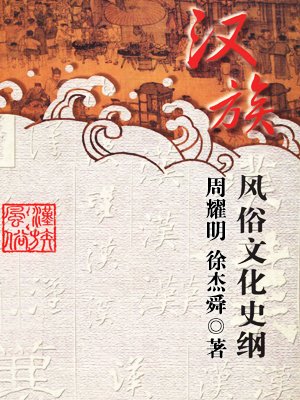 汉族
风俗文化史纲
周耀明 徐杰舜◎著
漢族
風俗
漢 漢 漢